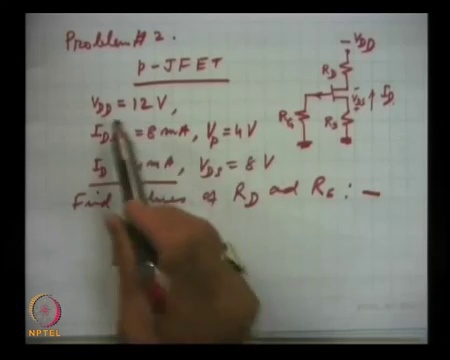 Problem # 2.
P-JFET
VDD = 12 V,
= 8 mA, VP = 4V
ID mA, VDS = 8 V
Find of RD ad RS : -
-VDD
RD
VDS
ID
RG
RS
NPTEL